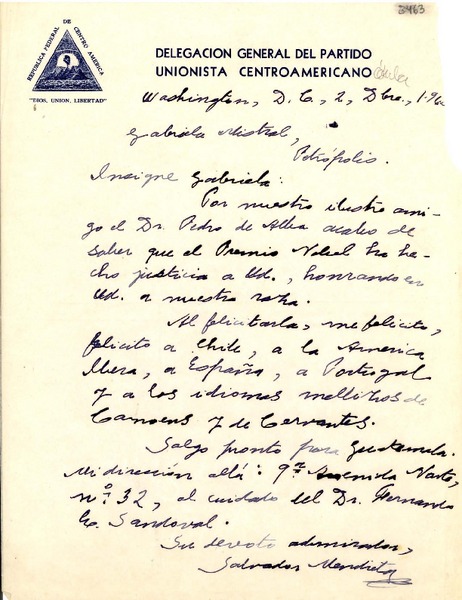 3463
REPUBLICA FEDERAL DE CENTRO AMERICA
"DIOS, UNION, LIBERTAD"
DELEGACION GENERAL DEL PARTIDO
UNIONISTA CENTROAMERICANO
Washington, D. C., 2, Dbre.,
Gabriela Mistral,
Petrópolis.
Insigne Gabriela:
Por nuestro ilustre ami-
go el Dr. Pedro de Alba acabo de
saber que el Premio Nobel ha he-
cho justicia a Ud., honrando en
Ud. a nuestra raza.
Al felicitarla, me felicito,
felicito a Chile, a la America
Ibera, a España, a Portugal
y a los idiomas mellizos de
Camoens y de Cervantes.
Salgo pronto para Guatemala.
Mi dirección allá: 9ª Avenida Norte,
nº 32, al cuidado del Dr. Fernando
Sandoval.
Su devoto admirador,
Salvador Mendieta